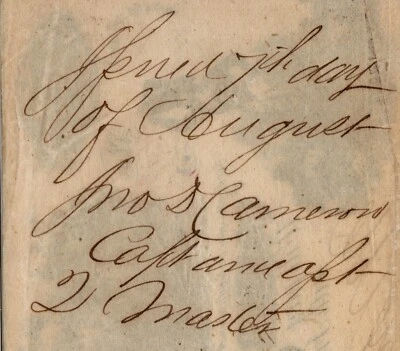 Issued 7th day
of August
Jno D Cameron
Capt and asst
2 Master